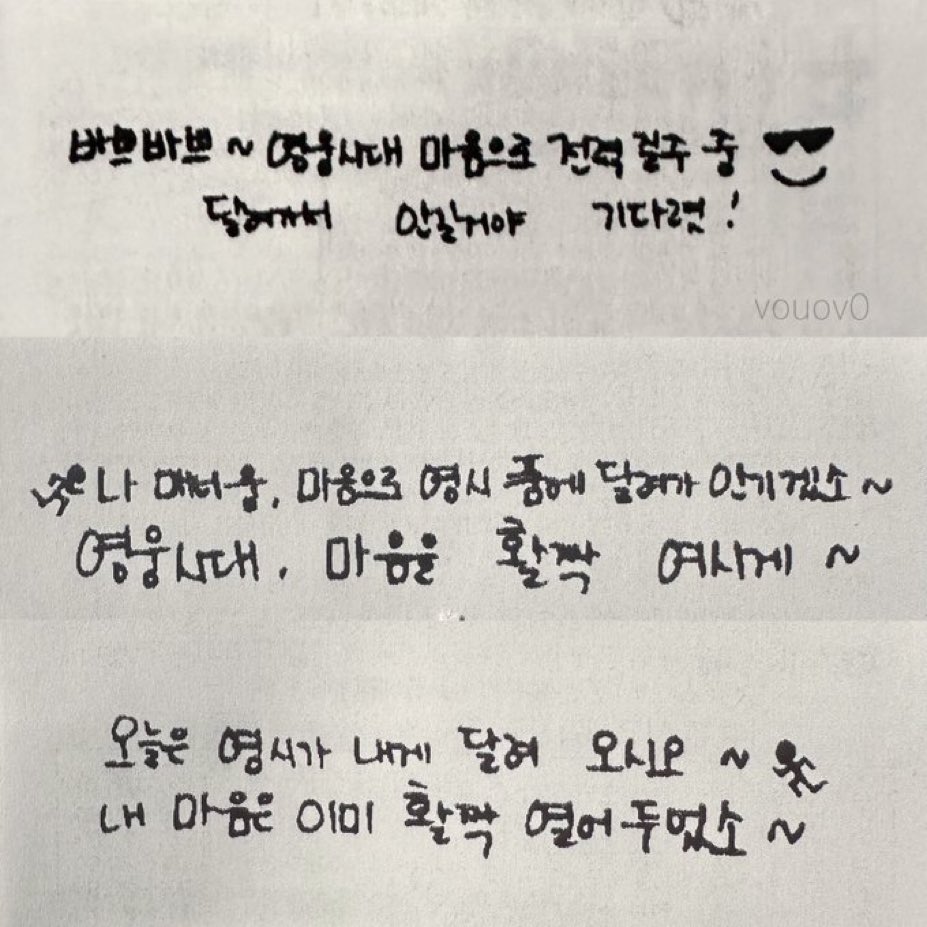 바쁘바쁘~ 영웅시대 마음으로 전력 질주 중
달려가서 안길거야 기다렷!
vouov0
나 매너웅, 마음으로 영시 품에 달려가 안기겠소~
영웅시대, 마음을 활짝 여시게~
오늘은 영시가 내게 달려 오시오~
내 마음은 이미 활짝 열어두었소~